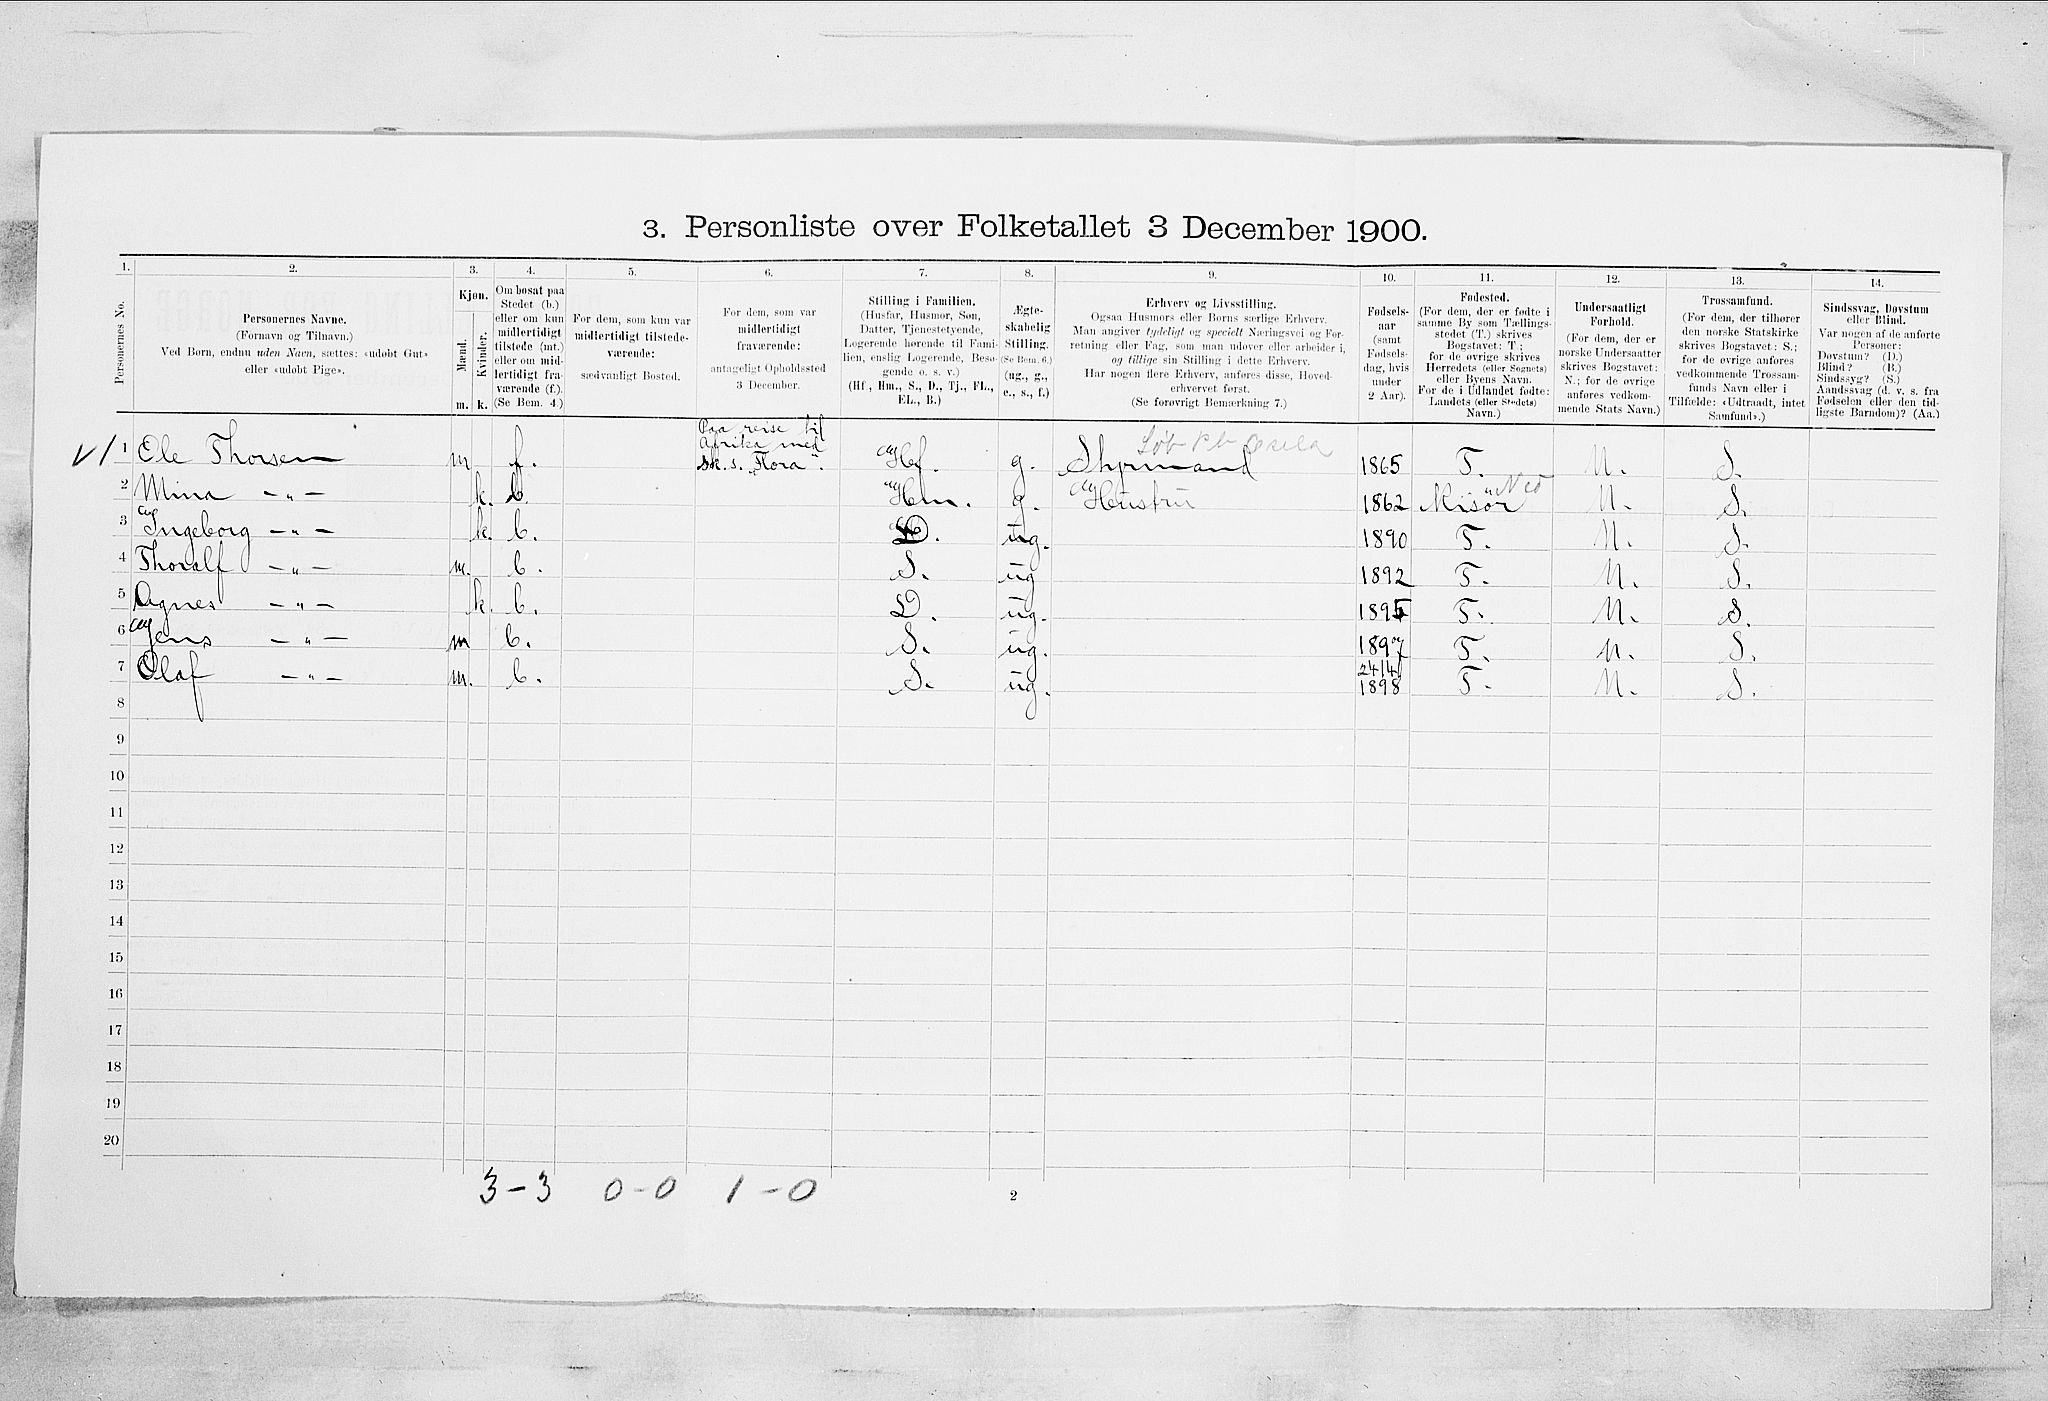 3. Personliste over Folketallet 3 December 1900.
1. 2. 3. 4. 5. 6. 7. 8. 9. 10. 11. 12. 13. 14.
Personernes No.
Personernes Navne.
(Fornavn og Tilnavn.)
Ved Børn, endnu uden Navn, sættes: «udøbt Gut»
eller «udøbt Pige».
Kjøn.
Mænd.
Kvinder.
m. k.
Om bosat paa
Stedet (b.)
eller om kun
midlertidigt
tilstede (mt.)
eller om mid-
lertidigt fra-
værende (f.).
(Se Bem. 4.)
For dem, som kun var
midlertidigt tilstede-
værende:
sædvanligt Bosted.
For dem, som var
midlertidigt
fraværende:
antageligt Opholdssted
3 December.
Stilling i Familien.
(Husfar, Husmor, Søn,
Datter, Tjenestetyende,
Logerende hørende til Fami-
lien, enslig Logerende, Besø-
gende o. s. v.)
(Hf., Hm., S., D., Tj., FL.,
EL., B.)
Ægte-
skabelig
Stilling.
(Se Bem. 6.)
(ug., g.,
e., s., f.)
Erhverv og Livsstilling.
Ogsaa Husmors eller Børns særlige Erhverv.
Man angiver tydeligt og specielt Næringsvei og For-
retning eller Fag, som man udøver eller arbeider i,
og tillige sin Stilling i dette Erhverv.
Har nogen flere Erhverv, anføres disse, Hoved-
erhvervet først.
(Se forøvrigt Bemærkning 7.)
Fødsels-
aar
(samt
Fødsels-
dag, hvis
under
2 Aar).
Fødested.
(For dem, der er fødte i
samme By som Tællings-
stedet (T.) skrives
Bogstavet: T;
for de øvrige skrives
Herredets (eller Sognets)
eller Byens Navn.
For de i Udlandet fødte:
Landets (eller Stedets)
Navn.)
Undersaatligt
Forhold.
(For dem, der er
norske Undersaatter
skrives Bogstavet:
N.; for de øvrige
anføres vedkom-
mende Stats Navn.)
Trossamfund.
(For dem, der tilhører
den norske Statskirke
skrives Bogstavet: S.;
for de øvrige anføres
vedkommende Trossam-
funds Navn eller i
Tilfælde: «Udtraadt, intet
Samfund».)
Sindssvag, Døvstum
eller Blind.
Var nogen af de anførte
Personer:
Døvstum? (D.)
Blind? (B.)
Sindssyg? (S.)
Aandssvag (d. v. s. fra
Fødselen eller den tid-
ligste Barndom)? (Aa.)
Paa reise til
Afrika med
sk. s. "Flora".
1 Ole Thorsen m f. Hf. g. Styrmand 1865 T. N. S.
2 Mina —"— k. b. Hm. g. Hustru 1862 N. S.
3 Ingeborg —"— k. b. D. ug. 1890 T. N. S.
4 Thoralf —"— m. b. S. ug 1892 T. N. S.
5 Agnes —"— k. b. D. ug. 1895 T. N. S.
6 Jens —"— m b. S. ug. 1897 T. N. S.
7 Olaf —"— m. b. S. ug. 24/4 1898 T. N. S.
8
9
10
11
12
13
14
15
16
17
18
19
20
3-3 0-0 1-0
2